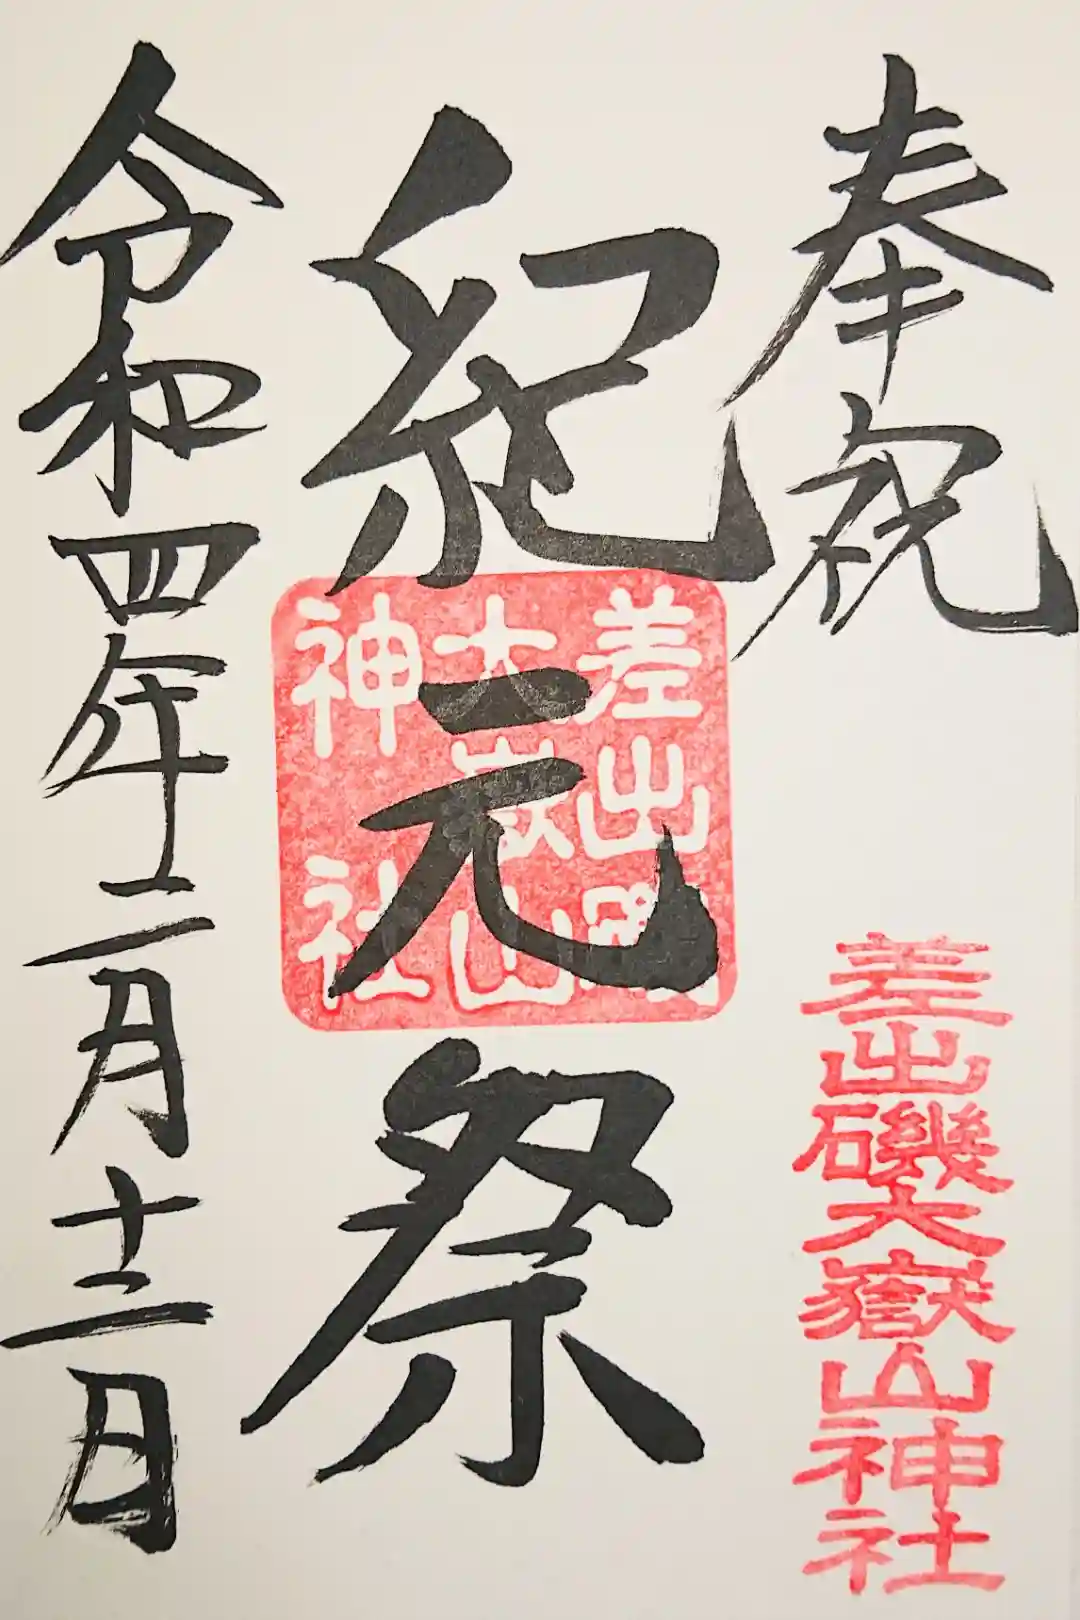 奉祝
差出磯大嶽山神社
紀元祭
差出磯
大嶽山
神社
令和四年二月十二日